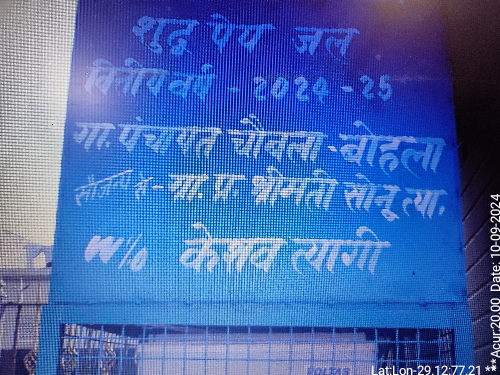 शुद्ध पेय जल
वित्तीय वर्ष - 2024 - 25
ग्रा. पंचायत चौबला - बोहला
सौजन्य से - ग्रा. प्र. श्रीमती सोनू त्या.
w/o केशव त्यागी
Lat:Lon-29.12:77.21
*** Acur:20.00 Date: 10-09-2024